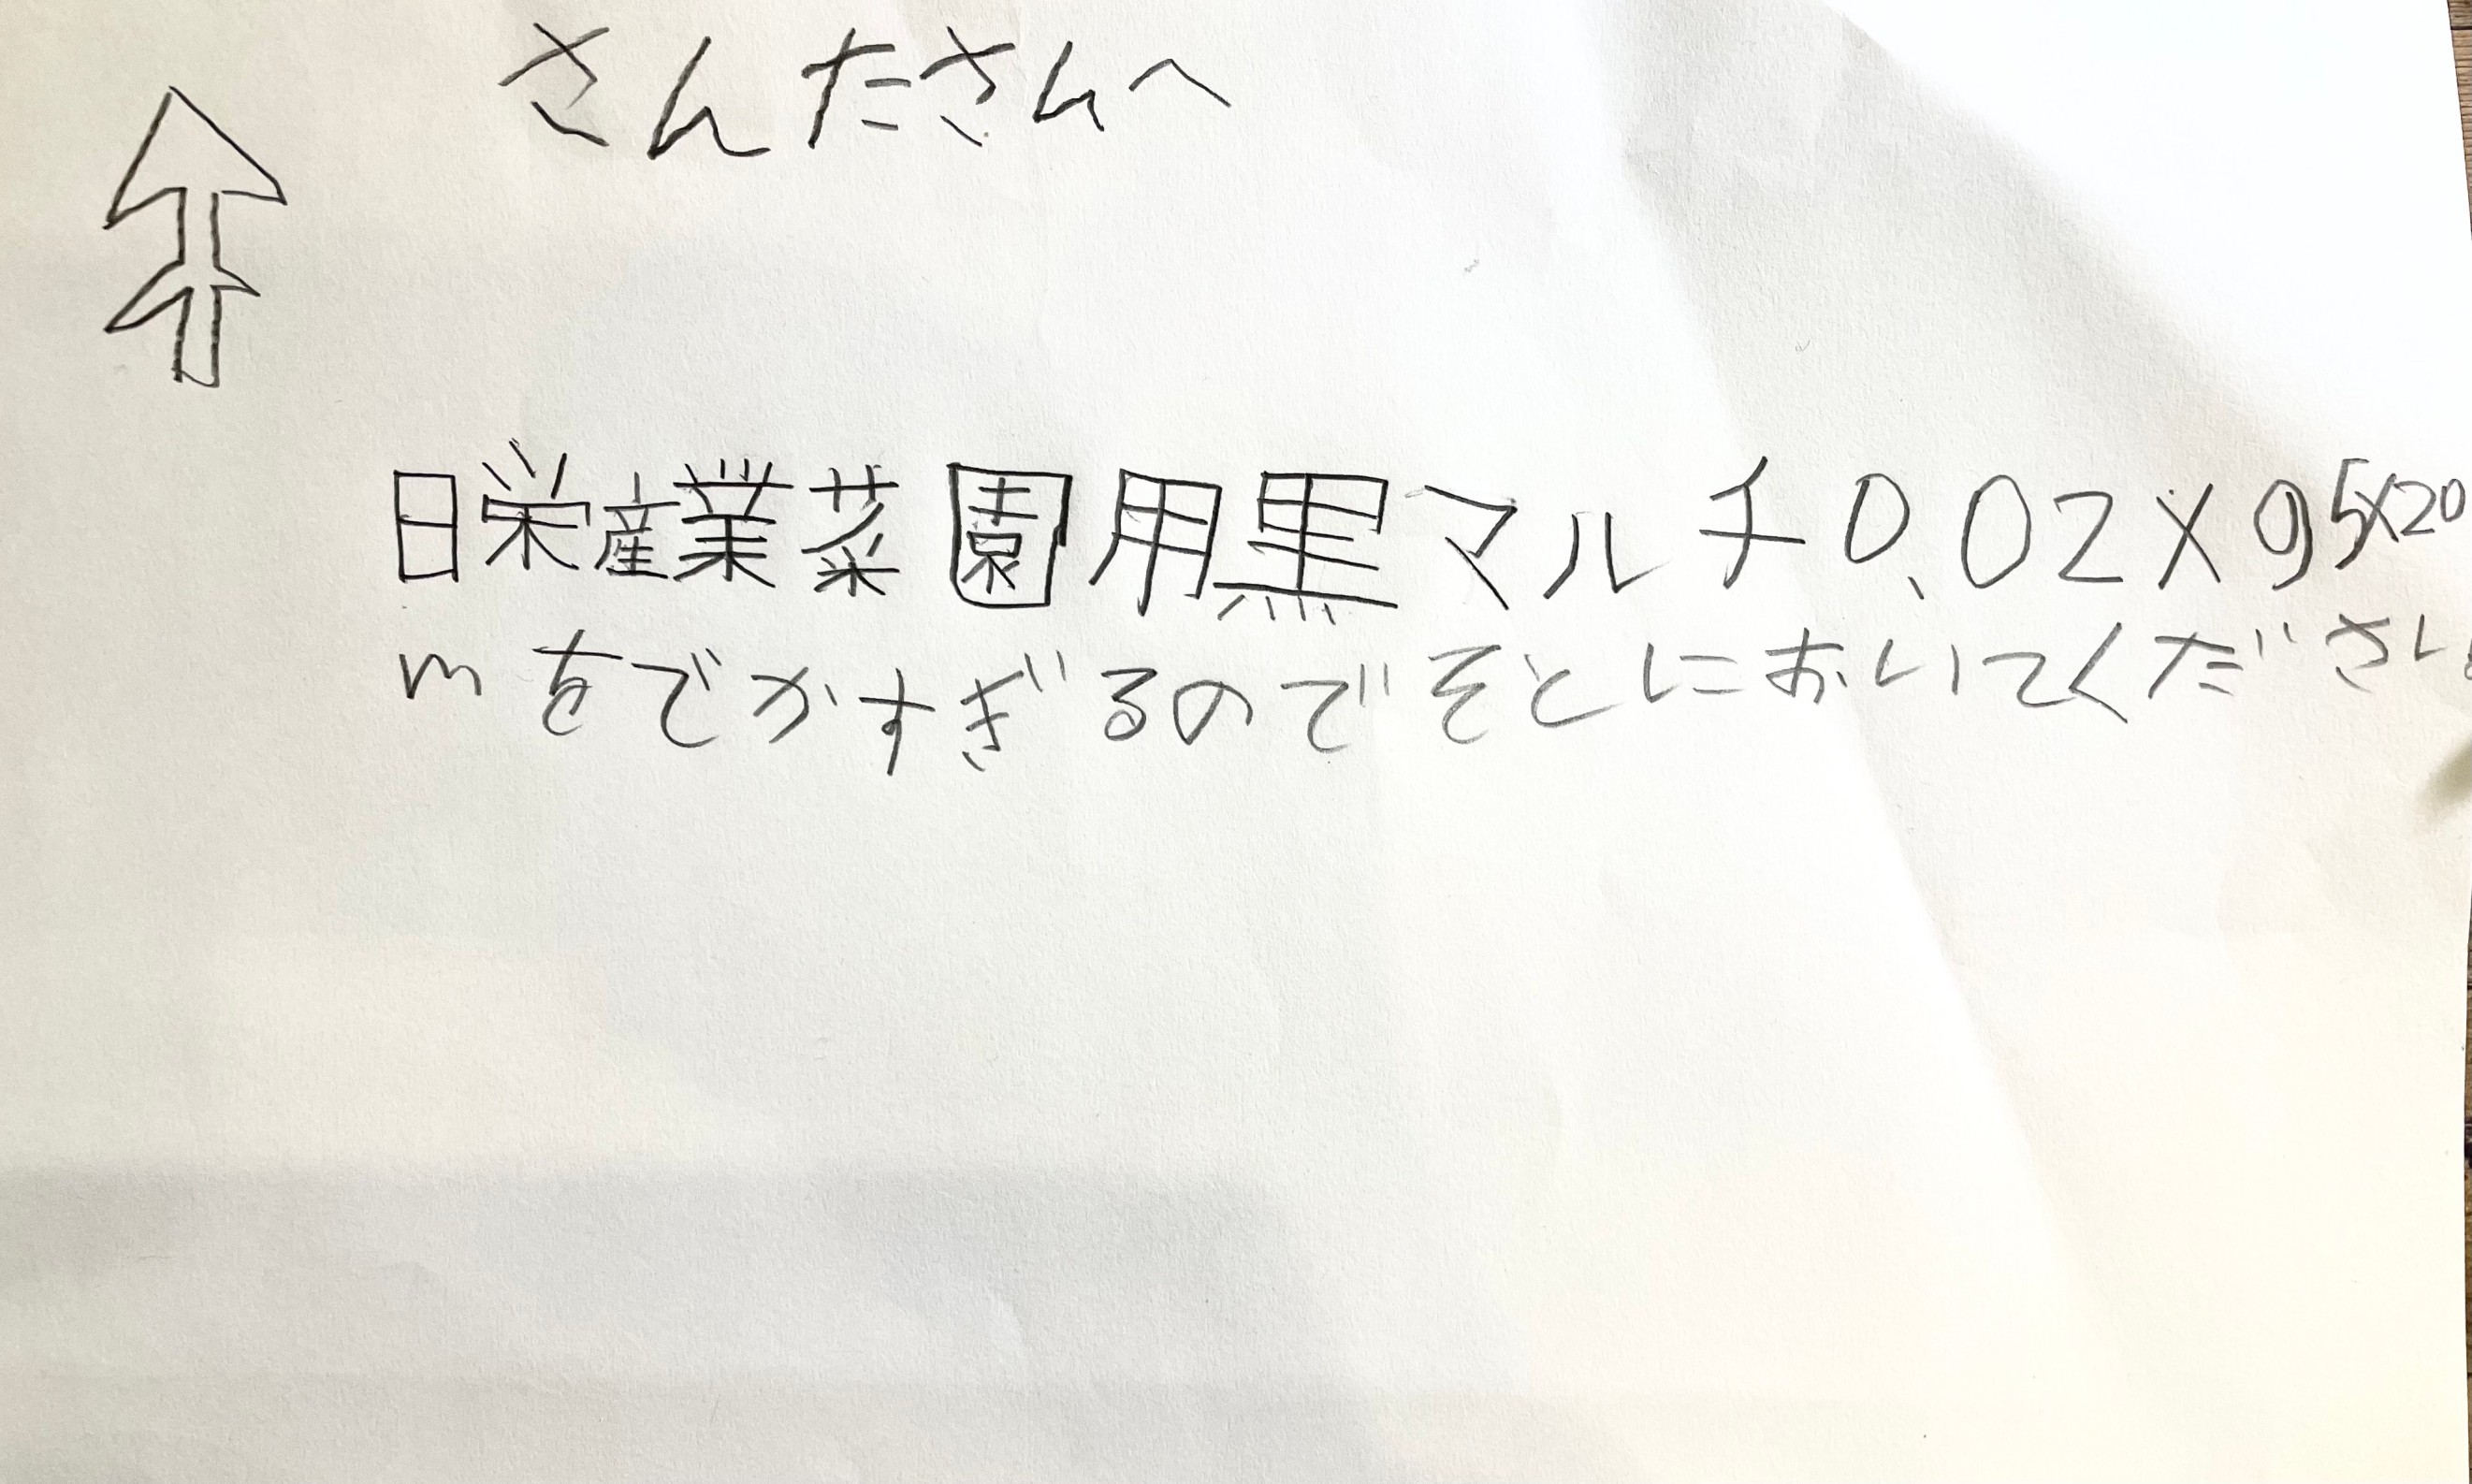 さんたさんへ
日栄産業菜園用黒マルチ0.02×95×20
mをでかすぎるのでそとにおいてください